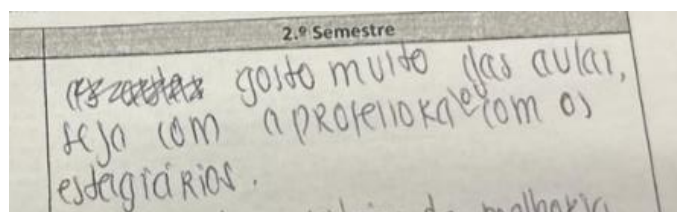 2.º Semestre
gosto muito das aulas,
seja com a professora ou com os
estagiários.
de melhoria